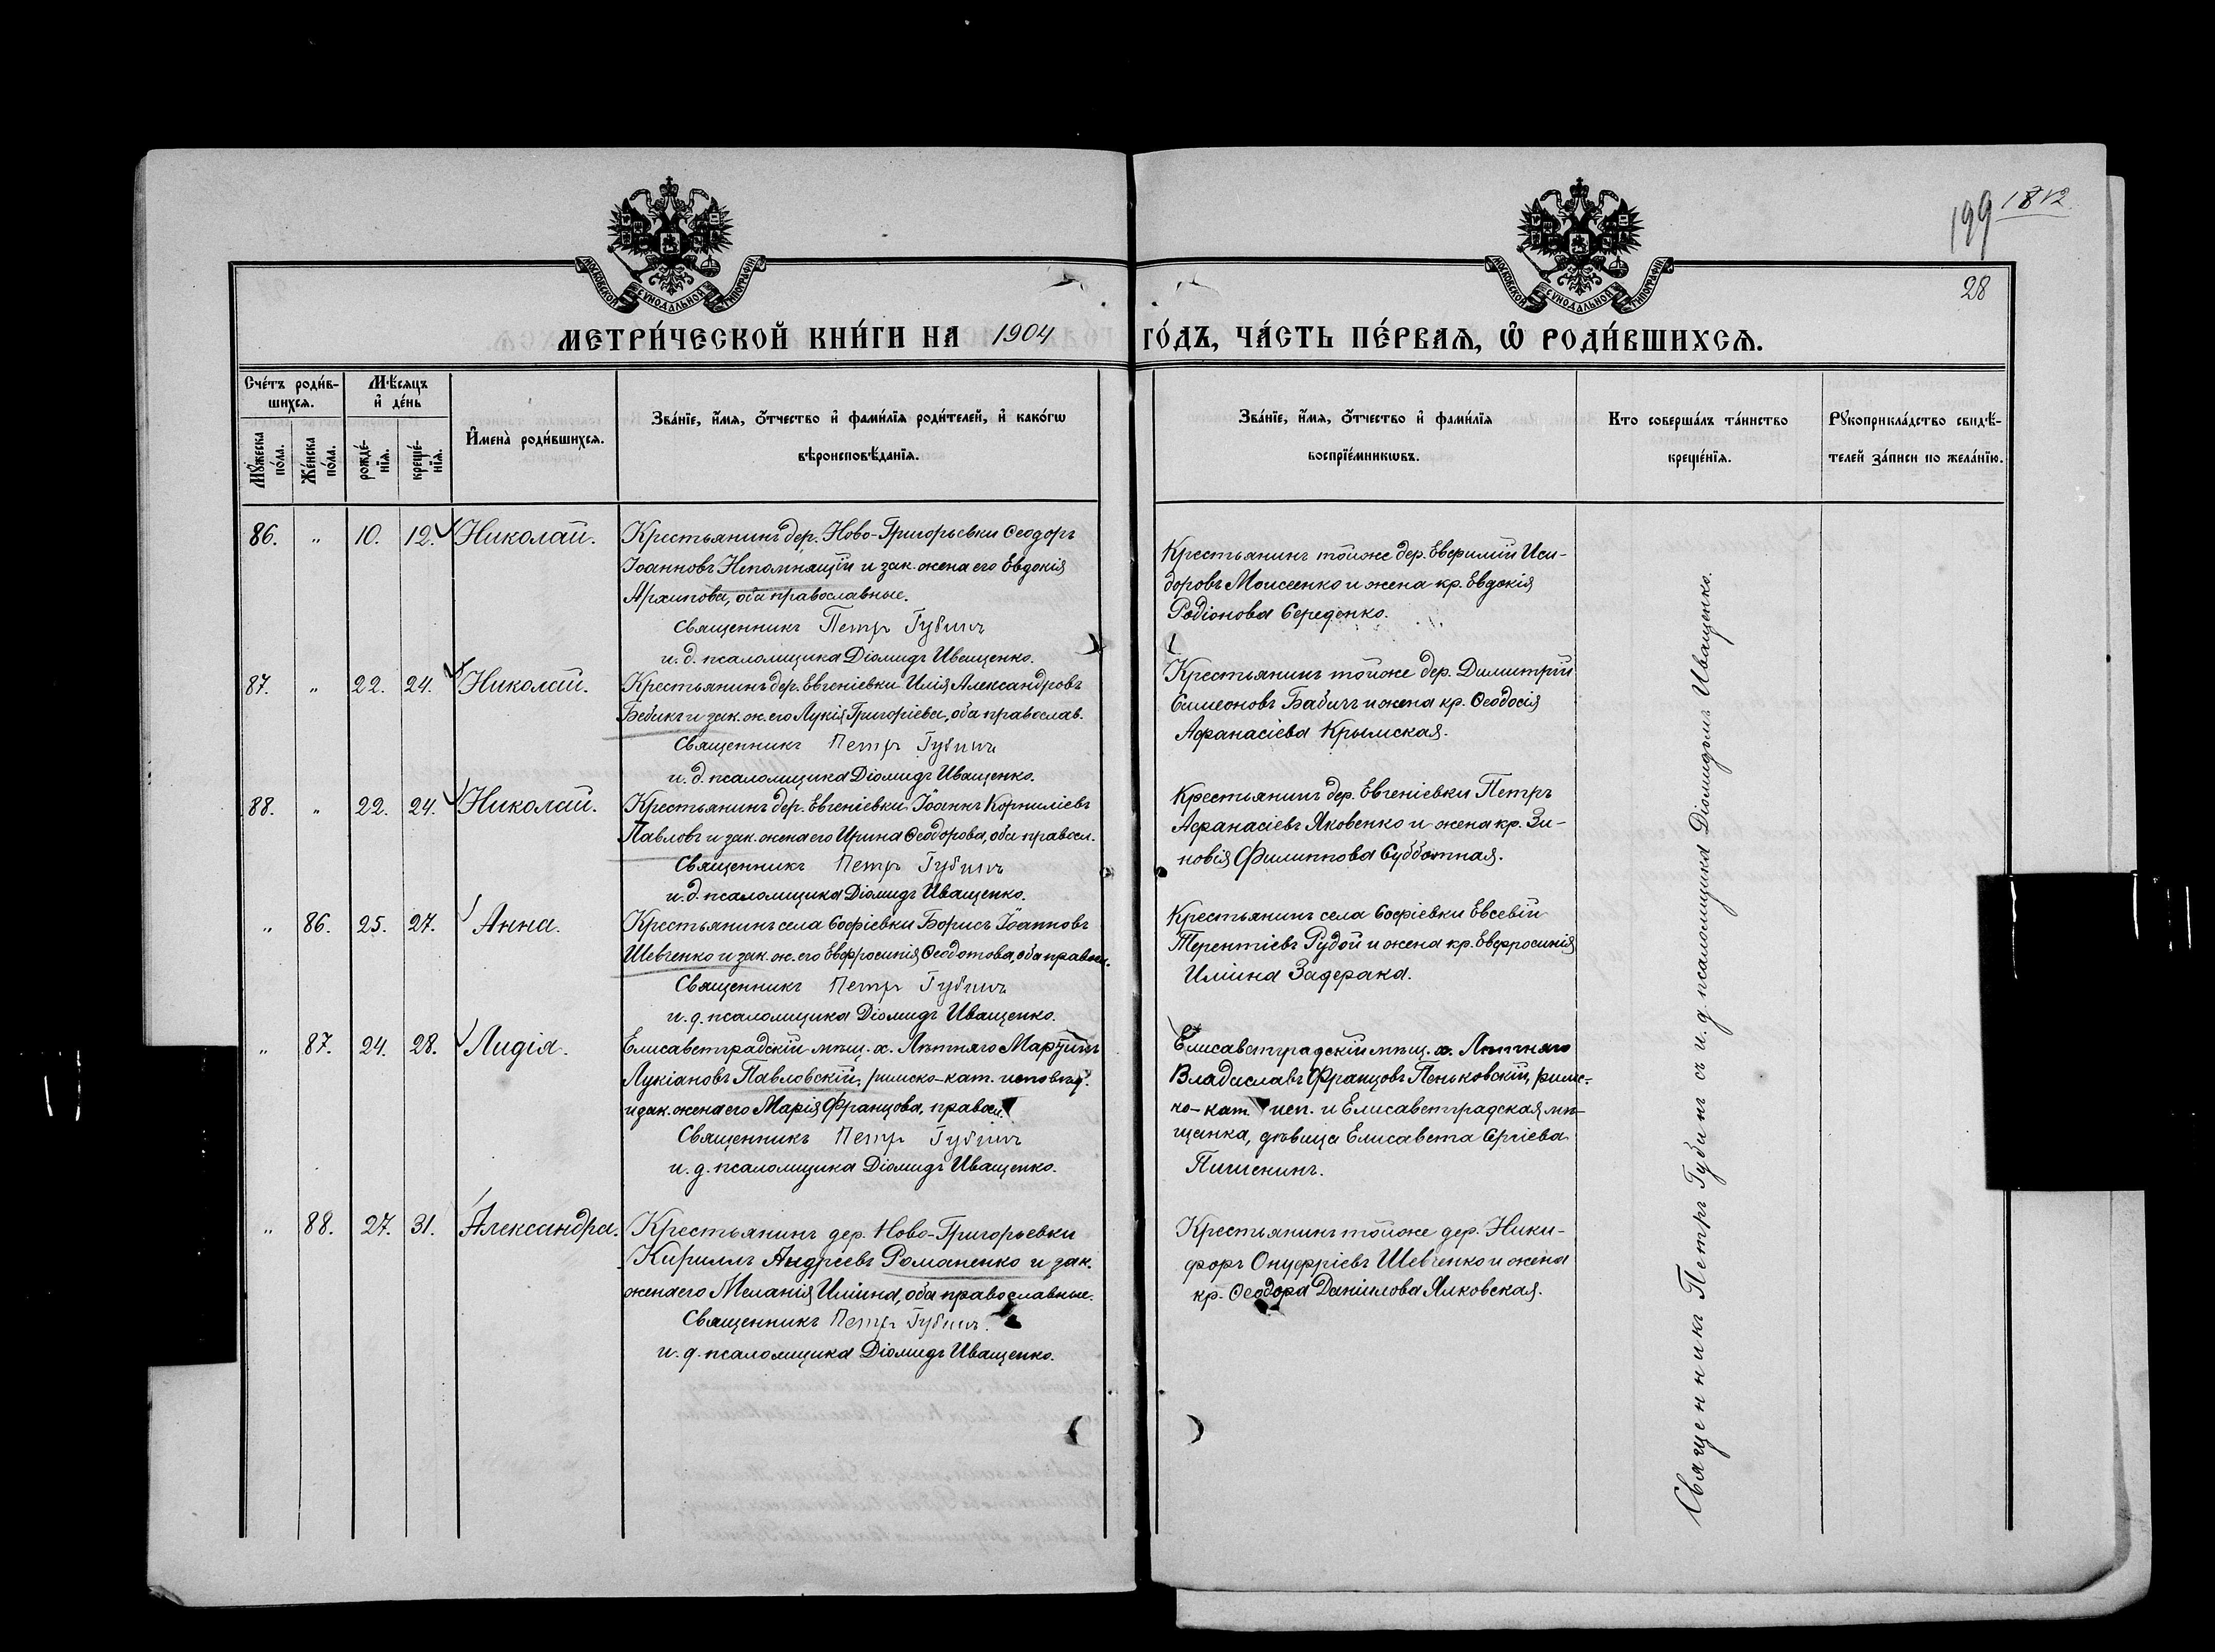 199 1812
28
МОСКОВСКОЙ СУНОДАЛЬНОЙ ТИПОГРАФІИ
МОСКОВСКОЙ СУНОДАЛЬНОЙ ТИПОГРАФІИ
МЕТРИ́ЧЕСКОЙ КНИ́ГИ НА 1904 ГО́ДЪ, ЧА́СТЬ ПЕ́РВАѦ, Ѿ РОДИ́ВШИХСѦ.
Сче́тъ роди́в-
шихсѧ.
Мѣ́сѧцъ
и҆ де́нь
Мꙋ́жеска
по́ла.
Же́нска
по́ла.
рожде́-
нїѧ.
креще́-
нїѧ.
И҆мена̀ роди́вшихсѧ.
Зва́нїе, и҆́мѧ, ѻ҆́тчество и҆ фами́лїѧ роди́телей, и҆ како́гѡ
вѣроисповѣ́данїѧ.
Зва́нїе, и҆́мѧ, ѻ҆́тчество и҆ фами́лїѧ
воспрїе́мникѡвъ.
Кто соверша́лъ та́инство
креще́нїѧ.
Рꙋкоприкла́дство свидѣ́-
телей за́писи по жела́нїю.
86. „ 10. 12. Николай.
Крестьянинъ дер. Ново-Григорьевки Ѳеодоръ
Іоанновъ Непомнящій и зак. жена его Евдокія
Архипова, оба православные.
Священникъ Петръ Губинъ
и. д. псаломщика Діомидъ Иващенко.
Крестьянинъ тойже дер. Евфимій Иси-
доровъ Моисеенко и жена кр. Евдокія
Родіонова Середенко.
87. „ 22. 24. Николай.
Крестьянинъ дер. Евгеніевки Илія Александровъ
Бебикъ и зак. ж. его Лукія Григоріева, оба православ.
Священникъ Петръ Губинъ
и. д. псаломщика Діомидъ Иващенко.
Крестьянинъ тойже дер. Димитрій
Симеоновъ Бабичъ и жена кр. Ѳеодосія
Афанасіева Крымская.
88. „ 22. 24. Николай.
Крестьянинъ дер. Евгеніевки Іоаннъ Корниліевъ
Павловъ и зак. жена его Ирина Ѳеодорова, оба правосл.
Священникъ Петръ Губинъ
и. д. псаломщика Діомидъ Иващенко.
Крестьянинъ дер. Евгеніевки Петръ
Афанасіевъ Яковенко и жена кр. Зи-
новія Филиппова Субботная.
„ 86. 25. 27. Анна.
Крестьянинъ села Софіевки Борисъ Іоанновъ
Шевченко и зак. ж. его Евфросинія Ѳеодотова, оба правосл.
Священникъ Петръ Губинъ
и. д. псаломщика Діомидъ Иващенко.
Крестьянинъ села Софіевки Евсевій
Терентіевъ Рудой и жена кр. Евфросинія
Иліина Задерака.
„ 87. 24. 28. Лидія.
Елисаветградскій мѣщ. х. Лѣтняго
Лукіановъ Павловскій, римско-кат. исповѣд.
и зак. жена его Марія Францова, правосл.
Священникъ Петръ Губинъ
и. д. псаломщика Діомидъ Иващенко.
Елисаветградскій мѣщ. х. Лѣтняго
Владиславъ Францовъ Пеньковскій, римс-
ко-кат. исп. и Елисаветградская мѣ-
щанка, дѣвица Елисавета Сергіева
„ 88. 27. 31. Александра.
Крестьянинъ дер. Ново-Григорьевки
Кириллъ Андреевъ Романенко и зак.
жена его Меланія Иліина, оба православные.
Священникъ Петръ Губинъ.
и. д. псаломщика Діомидъ Иващенко.
Крестьянинъ тойже дер. Ники-
форъ Онуфріевъ Шевченко и жена
кр. Ѳеодора Даніилова Ялковская.
Священникъ Петръ Губинъ съ и. д. псаломщика Діомидомъ Иващенко.